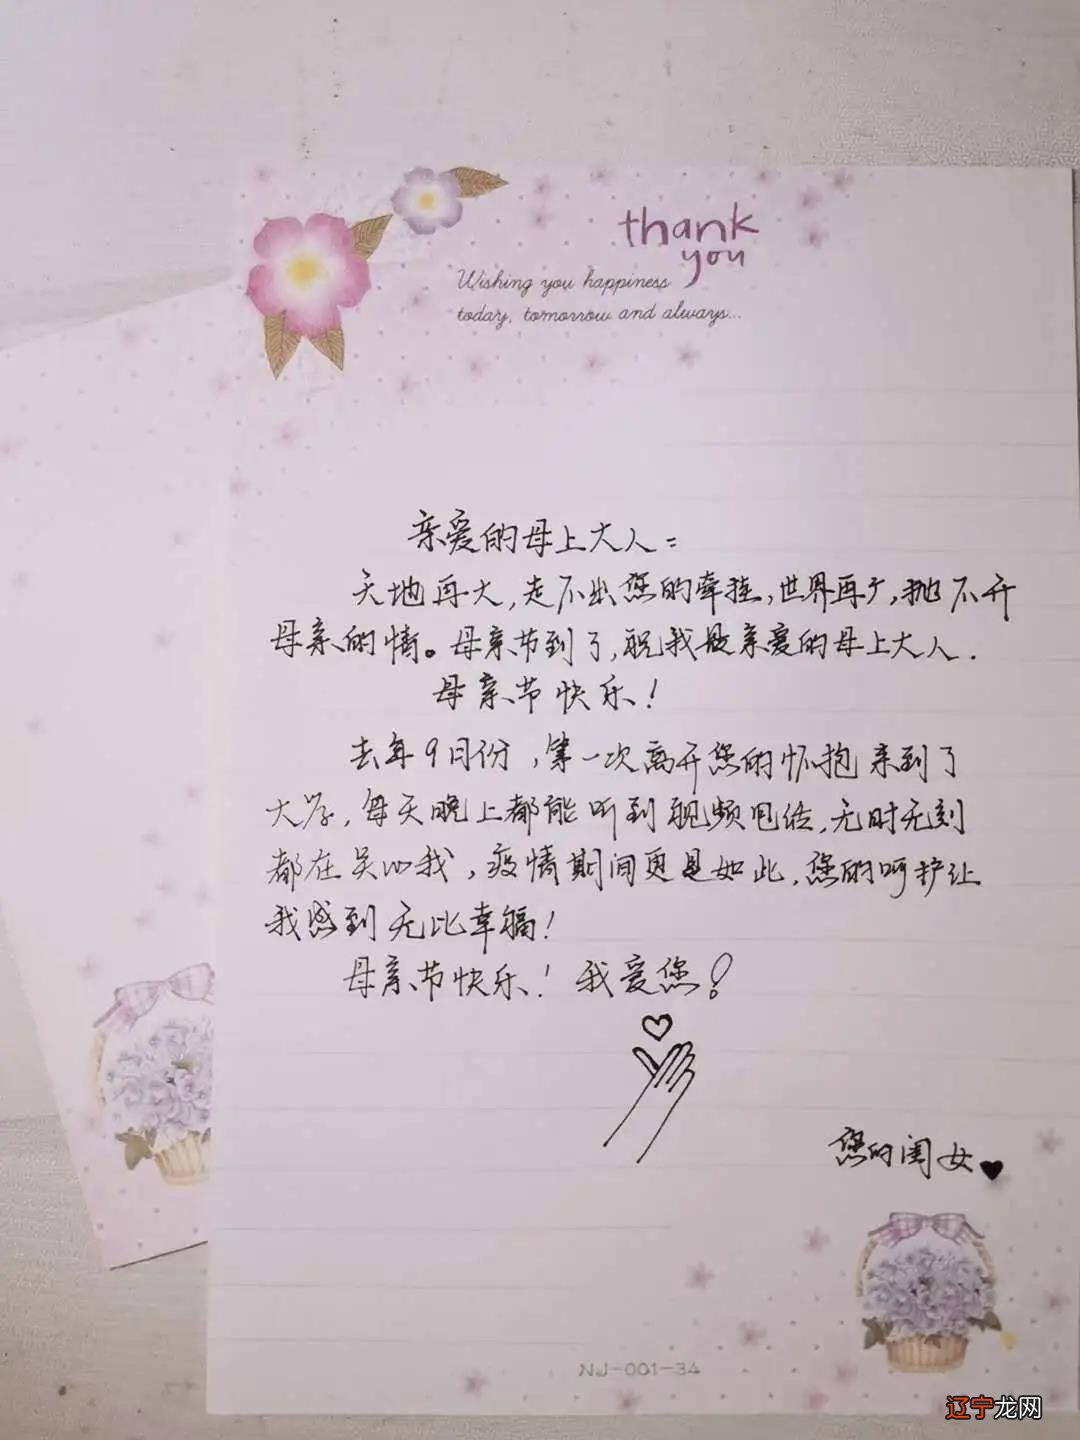 thank
you
Wishing you happiness
today, tomorrow and always...
亲爱的母上大人：
天地再大，走不出您的牵挂，世界再广，抛不开
母亲的情。母亲节到了，祝我最亲爱的母上大人．
母亲节快乐！
去年9月份，第一次离开您的怀抱来到了
大学，每天晚上都能听到视频电话，无时无刻
都在关心我，疫情期间更是如此，您的呵护让
我感到无比幸福！
母亲节快乐！我爱您！
您的闺女
NJ-001-34
辽宁龙网